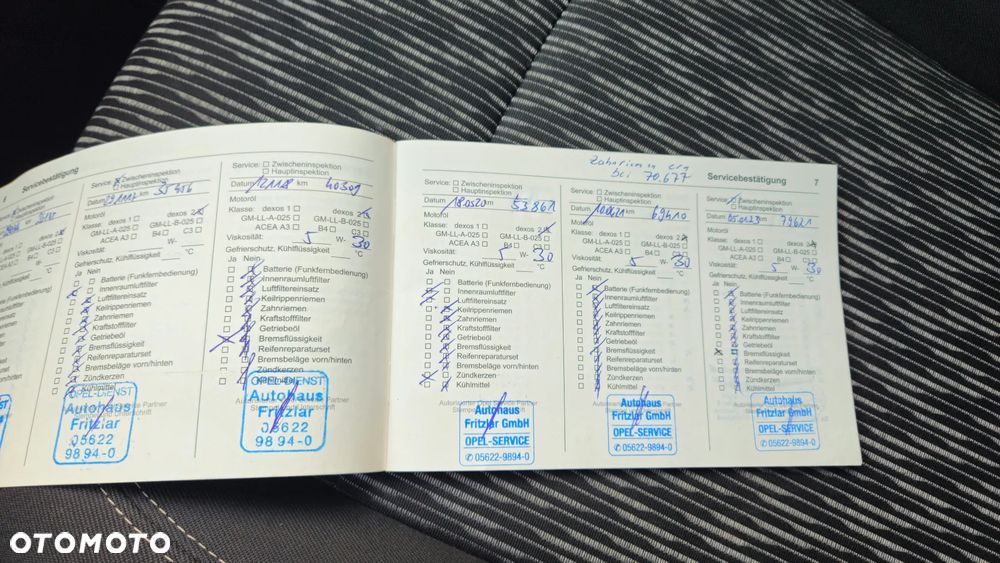 Servicebestätigung
Datum 35 906 km
Motoröl
Klasse: dexos 1 dexos 2
GM-LL-A-025 GM-LL-B-025
ACEA A3 B4 C3
Viskosität: W-
Gefrierschutz, Kühlflüssigkeit °C
Ja Nein
Batterie (Funkfernbedienung)
Innenraumluftfilter
Luftfiltereinsatz
Keilrippenriemen
Zahnriemen
Kraftstofffilter
Getriebeöl
Bremsflüssigkeit
Reifenreparaturset
Bremsbeläge vorn/hinten
Zündkerzen
Kühlmittel
OPEL-DIENST
Autohaus
Fritzlar
05622
98 94-0
Service: Zwischeninspektion
Hauptinspektion
Datum km 40309
Motoröl
Klasse: dexos 1 dexos 2
GM-LL-A-025 GM-LL-B-025
ACEA A3 B4 C3
Viskosität: 5 W- 30
Gefrierschutz, Kühlflüssigkeit °C
Ja Nein
Batterie (Funkfernbedienung)
Innenraumluftfilter
Luftfiltereinsatz
Keilrippenriemen
Zahnriemen
Kraftstofffilter
Getriebeöl
Bremsflüssigkeit
Reifenreparaturset
Bremsbeläge vorn/hinten
Zündkerzen
Kühlmittel
OPEL-DIENST
Autohaus
Fritzlar
05622
98 94-0
Zahnriemen
bei 70.677
Servicebestätigung 7
Service: Zwischeninspektion
Hauptinspektion
Datum 180520 km 53861
Motoröl
Klasse: dexos 1 dexos 2
GM-LL-A-025 GM-LL-B-025
ACEA A3 B4 C3
Viskosität: 5 W- 30
Gefrierschutz, Kühlflüssigkeit °C
Ja Nein
Batterie (Funkfernbedienung)
Innenraumluftfilter
Luftfiltereinsatz
Keilrippenriemen
Zahnriemen
Kraftstofffilter
Getriebeöl
Bremsflüssigkeit
Reifenreparaturset
Bremsbeläge vorn/hinten
Zündkerzen
Kühlmittel
Autorisierter Opel Service Partner
Autohaus
Fritzlar GmbH
OPEL-SERVICE
✆ 05622-9894-0
Service: Zwischeninspektion
Hauptinspektion
Datum km 69410
Motoröl
Klasse: dexos 1 dexos 2
GM-LL-A-025 GM-LL-B-025
ACEA A3 B4 C3
Viskosität: 5 W- 30
Gefrierschutz, Kühlflüssigkeit °C
Ja Nein
Batterie (Funkfernbedienung)
Innenraumluftfilter
Luftfiltereinsatz
Keilrippenriemen
Zahnriemen
Kraftstofffilter
Getriebeöl
Bremsflüssigkeit
Reifenreparaturset
Bremsbeläge vorn/hinten
Zündkerzen
Kühlmittel
Autohaus
Fritzlar GmbH
OPEL-SERVICE
✆ 05622-9894-0
Service: Zwischeninspektion
Hauptinspektion
Datum 050123 km 79621
Motoröl
Klasse: dexos 1 dexos 2
GM-LL-A-025 GM-LL-B-025
ACEA A3 B4 C3
Viskosität: 5 W- 30
Gefrierschutz, Kühlflüssigkeit °C
Ja Nein
Batterie (Funkfernbedienung)
Innenraumluftfilter
Luftfiltereinsatz
Keilrippenriemen
Zahnriemen
Kraftstofffilter
Getriebeöl
Bremsflüssigkeit
Reifenreparaturset
Bremsbeläge vorn/hinten
Zündkerzen
Kühlmittel
Autohaus
Fritzlar GmbH
OPEL-SERVICE
✆ 05622-9894-0
OTOMOTO